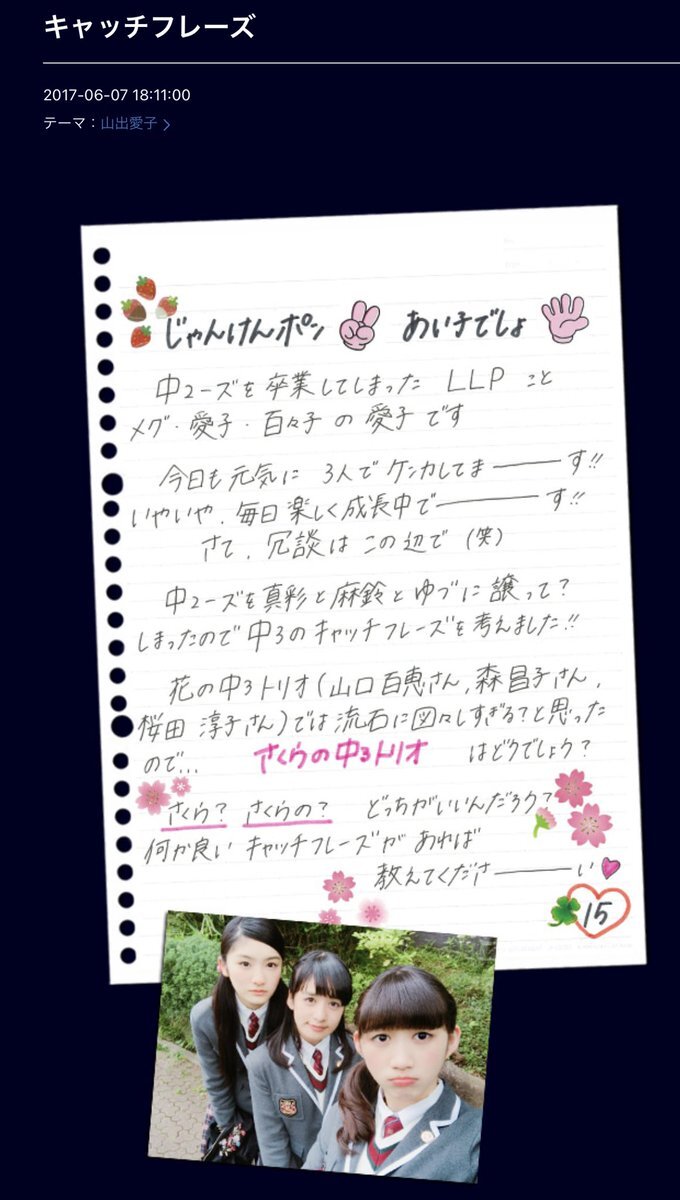 キャッチフレーズ
2017-06-07 18:11:00
テーマ：山出愛子
じゃんけんポン あい子でしょ
中2ーズを卒業してしまった LLP こと
メグ・愛子・百々子 の 愛子 です
今日も元気に 3人で ケンカしてま―――す!!
いやいや、毎日楽しく成長中で―――――す!!
さて、冗談は この辺で (笑)
中2ーズを真彩と麻鈴とゆづに譲って?
しまったので中3のキャッチフレーズを考えました!!
花の中3トリオ(山口百恵さん,森昌子さん,
桜田 淳子さん)では流石に図々しすぎる?と思った
ので... さくらの中3トリオ はどうでしょう?
さくら? さくらの? どっちがいいんだろう?
何か良い キャッチフレーズが あれば
教えてくださ―――――い
15